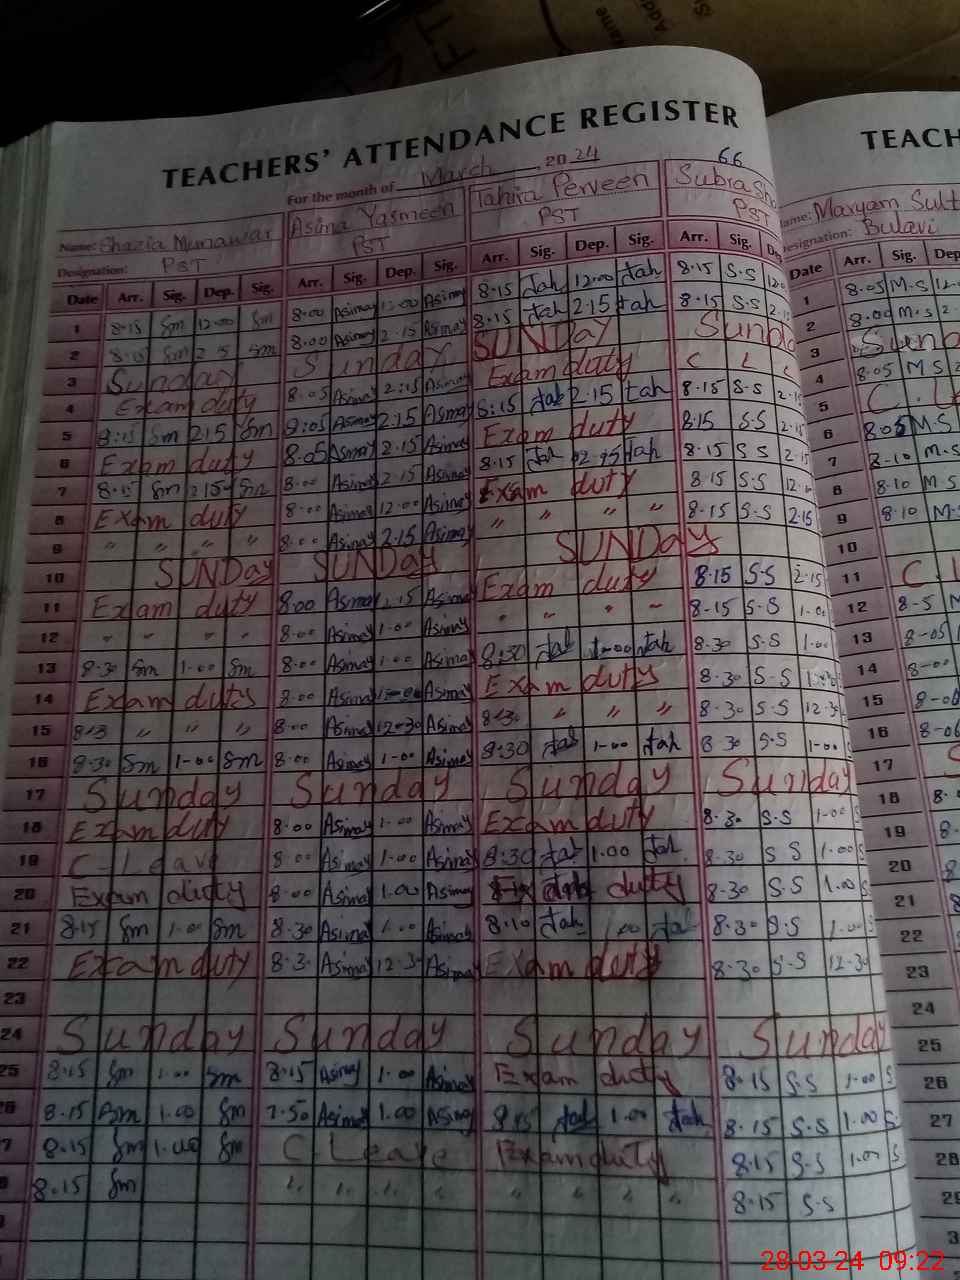 TEACHERS' ATTENDANCE REGISTER TEACH
For the month of March, 2024 66
Name: Shazia Munawar Asima Yasmeen Tahira Perveen Subra Sha ame: Maryam Sult
Designation: PST PST PST PST esignation: Bulavi
Date Arr. Sig. Dep. Sig. Arr. Sig. Dep. Sig. Arr. Sig. Dep. Sig. Arr. Sig. De Date Arr. Sig. Dep
1 8.15 Sm 12.00 Sm 8.00 Asimay 12.00 Asimay 8.15 tah 12.00 tah 8.15 S.S 12.0 1 8.05 M.S 12.
2 8.15 Sm 2.15 Sm 8.00 Asimay 2.15 Asimay 8.15 tah 2.15 tah 8.15 S.S 2.15 2 8.00 M.S 2.
3 Sunday Sunday SUNDay Sunda 3 Sund
4 Exam duty 8.05 Asimay 2:15 Asimay Exam duty C L 4 8.05 M S 2
5 8:15 Sm 2.15 Sm 8:05 Asimay 2.15 Asimay 8:15 tah 2.15 tah 8.15 S.S 2.15 5 C. Le
6 Exam duty 8.05 Asimay 2.15 Asimay Exam duty 8.15 S.S 2.15 6 8.05 M.S
7 8.15 Sm 2.15 Sm 8.00 Asimay 2.15 Asimay 8.15 tah 2.15 tah 8.15 S S 2.15 7 8.10 M.S
8 Exam duty 8.00 Asimay 12.00 Asimay Exam duty 8.15 S.S 12. 8 8.10 M.S
9 " " " " 8.00 Asimay 2.15 Asimay " " " " 8.15 S.S 2.15 9 8.10 M.S
10 SUNDay SUNDay SUNDay 10
11 Exam duty 8.00 Asimay 2.15 Asimay Exam duty 8.15 S.S 2.15 11 C. L
12 " " " " 8.00 Asimay 1.00 Asimay " " " " 8-15 S.S 1.00 12 8-5 M
13 8.30 Sm 1.00 Sm 8.00 Asimay 1.00 Asimay 8:30 tah 1.00 tah 8.30 S.S 1.00 13 8-05
14 Exam duty 8.00 Asimay Asimay Exam duty 8.30 S.S 14 8-00
15 " " " 8.00 Asimay 12.30 Asimay " " " 8.30 S.S 12.3 15 8-0
16 8.30 Sm 1.00 Sm 8.00 Asimay 1.00 Asimay 8:30 tah 1.00 tah 8 30 S.S 1.00 16 8-0
17 Sunday Sunday Sunday Sunday 17 S
18 Exam duty 8.00 Asimay 1.00 Asimay Exam duty 8.30 S.S 1.00 18 8.
19 C-Leave 8.00 Asimay 1.00 Asimay 8:30 tah 1.00 tah 8.30 S S 1.00 19 8.
20 Exam duty 8.00 Asimay 1.00 Asimay duty 8.30 S.S 1.00 20 8
21 8.15 Sm 1.00 Sm 8.30 Asimay 1.00 Asimay 8.10 tah 1.00 tah 8.30 S.S 1.00 21 8
22 Exam duty 8.30 Asimay 12.30 Asimay Exam duty 8.30 S.S 12.30 22
23 23
24 Sunday Sunday Sunday Sunday 24
25 8.15 Sm 1.00 Sm 8.15 Asimay 1.00 Asimay Exam duty 8.15 S.S 1.00 S 25
8.15 Sm 1.00 Sm 7.50 Asimay 1.00 Asimay 8.15 tah 1.00 tah 8.15 S.S 1.00 S. 26
7 8.15 Sm 1.00 Sm C.Leave Exam duty 8.15 S.S 1.00 S 27
8.15 Sm " " " " " " " " 8.15 S.S 28
29
28-03-24 09:22